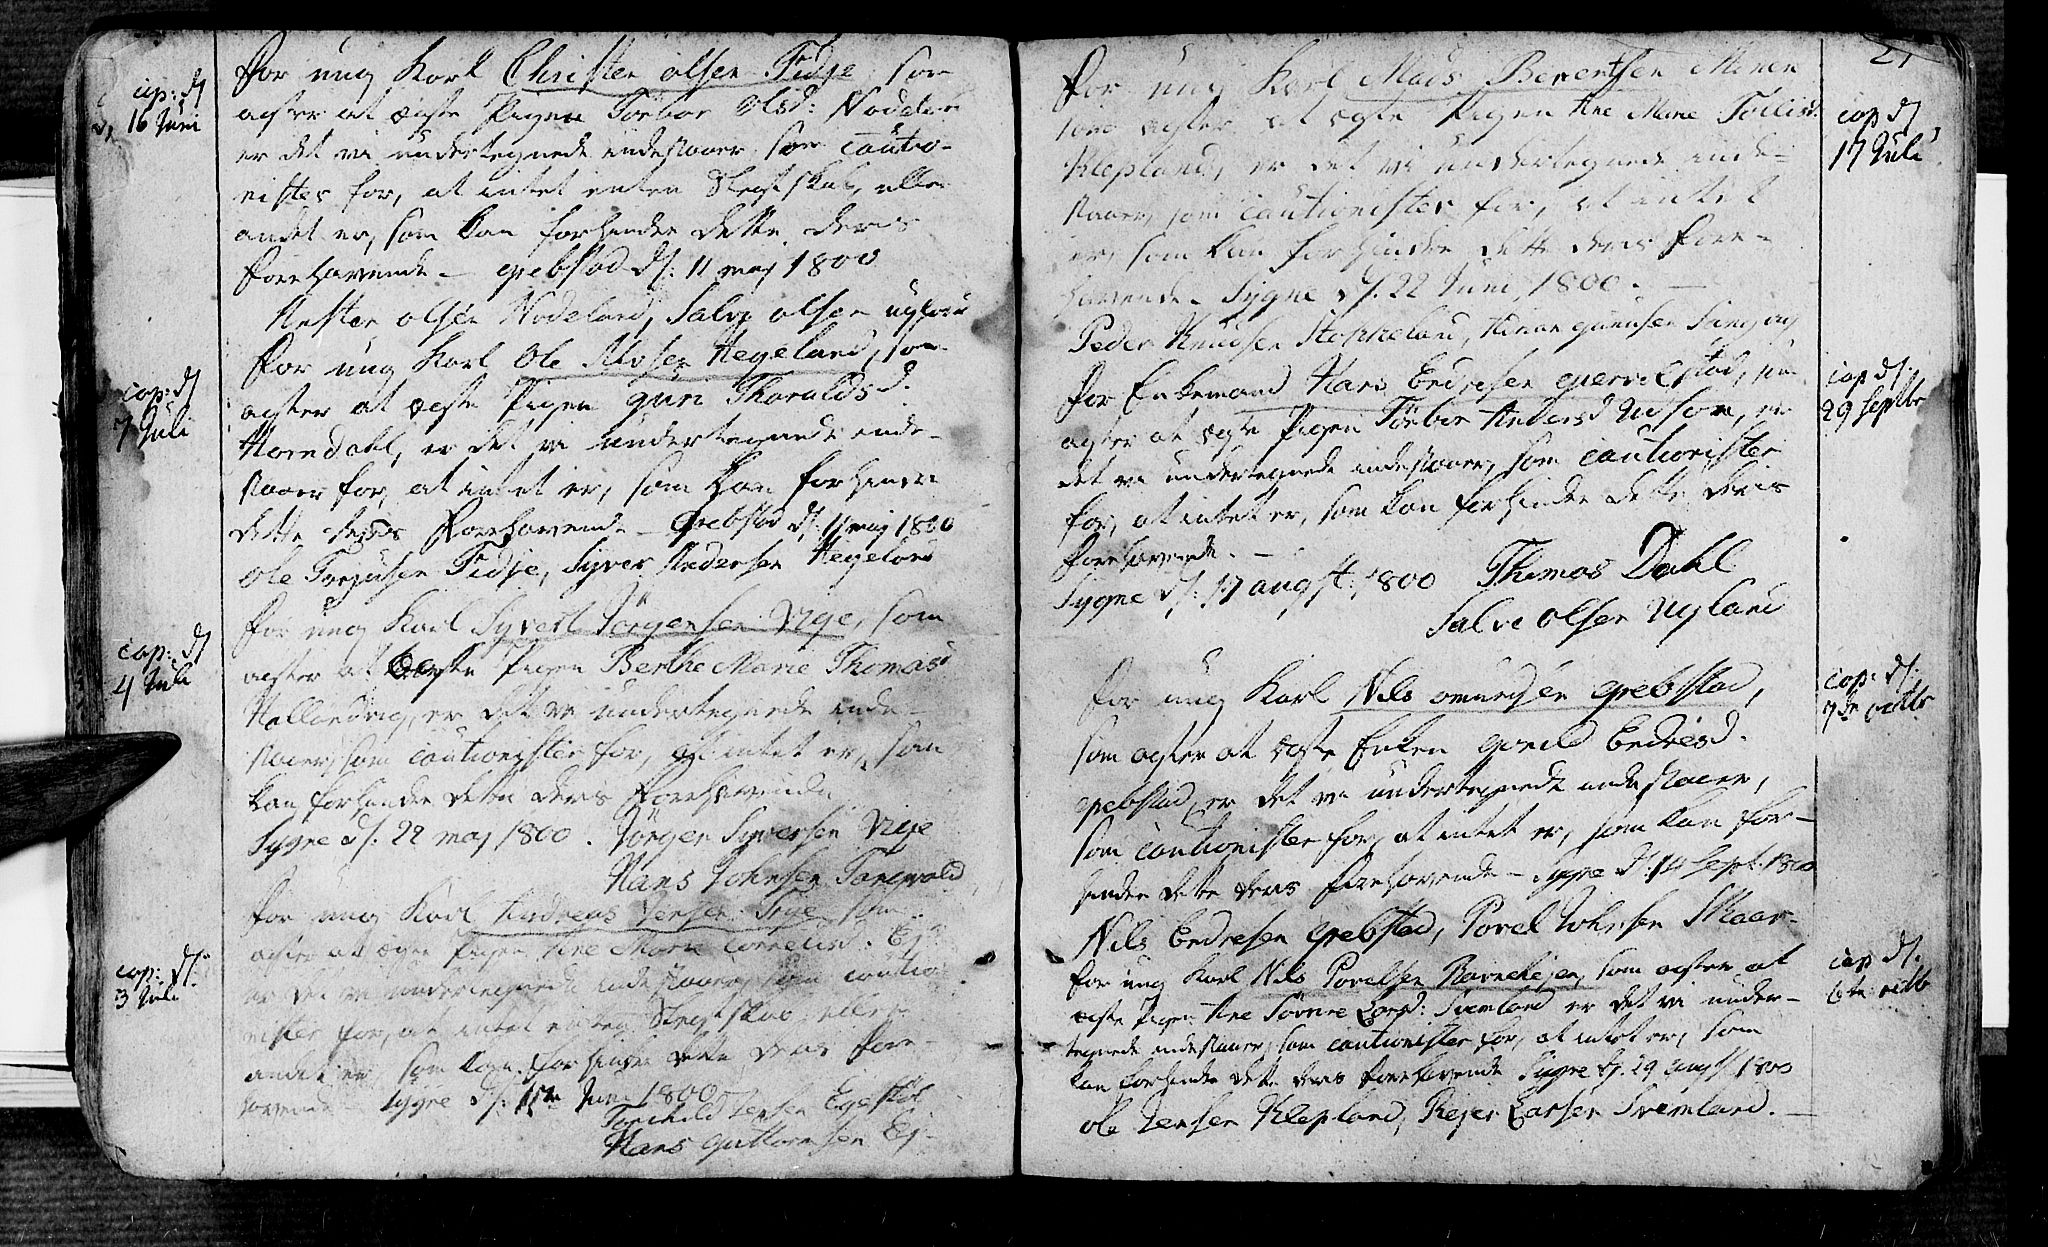 cop: d
16 Juni
For ung Karl Christen Olsen Fidje, som
agter at ægte Pigen Torbor Olsd: Nodeland
er det vi undertegnede indestaaer som cautio-
nister for, at intet enten Slegtskab, eller
andet er, som kan forhindre dette deris
forehavende – Grebstad d: 11 maj 1800
Olsen Nodeland, Salve Olsen Nyland
cop: d
7 Juli
For ung Karl Ole Hegeland, som
agter at ægte Pigen Guri Tharaldsd.
Homdahl, er det vi undertegnede inde-
staaer for, at intet er, som kan forhindre
dette deris forehavende – Grebstad d: 11 maj 1800
Ole Torjusen Fidje, Syver Andersen Hegeland
cop: d
4 Juli
For ung Karl Syvert Jörgensen Vige, som
agter at ægte Pigen Berthe Marie Thomasd
Hallandvig, er det vi undertegnede inde-
staaer, som cautionister for, at intet er, som
kan forhindre dette deris forehavende
Sygne d: 22 maj 1800. Jörgen Syversen Vige
Hans Johnsen Tanevold
cop: d:
3 Juli
For ung Karl Andreas Jensen som
agter at ægte Pigen Ane Marie Cornelisd. Eg
er det vi undertegnede indestaaer, som cautio-
nister for, at intet enten Slegtskab, eller
andet er, som kan forhindre dette deris fore-
havende – Sygne d: 11te Juni 1800
Jensen Egesköl
Hans Guttormsen Eg
21
For ung Karl Mads Berentsen
som agter at ægte Pigen Ane Marie Tollisd.
Klepland, er det vi undertegnede inde-
staaer, som cautionister for, at intet
er, som kan forhindre dette deris fore-
havende – Sygne d: 22 Juni 1800. –
Peder Knudsen Stoppeland, Gunusen
cop d
17 Juli
For Enkemand Hans Endresen Gjervelstad, som
agter at ægte Pigen Törbor Andersd er
det vi undertegnede indestaaer, som cautionister
for, at intet er, som kan forhindre dette deris
forehavende. –
Sygne d: 17 augst: 1800 Thomas Dahl
Salve Olsen Nyland
cop d:
29 Septbr
For ung Karl Nils Omundsen Grebstad,
som agter at ægte Enken Gonild Endresd.
Grebstad, er det vi undertegnede indestaaer,
som cautionister for, at intet er, som kan for-
hindre dette deris forehavende – Sygne d: 14 Sept. 1800
Nils Endresen Grebstad, Povel Johnsen Skaar-
cop: d:
7de octbr
For ung Karl Nils Povelsen som agter at
ægte Pigen Ane Larsd: Tremland er det vi under-
tegnede indestaaer, som cautionister for, at intet er, som
kan forhindre dette deris forehavende Sygne d: 29 augst 1800
Ole Jensen Klepland, Rejer Larsen Tremland. –
cop d:
6te octb